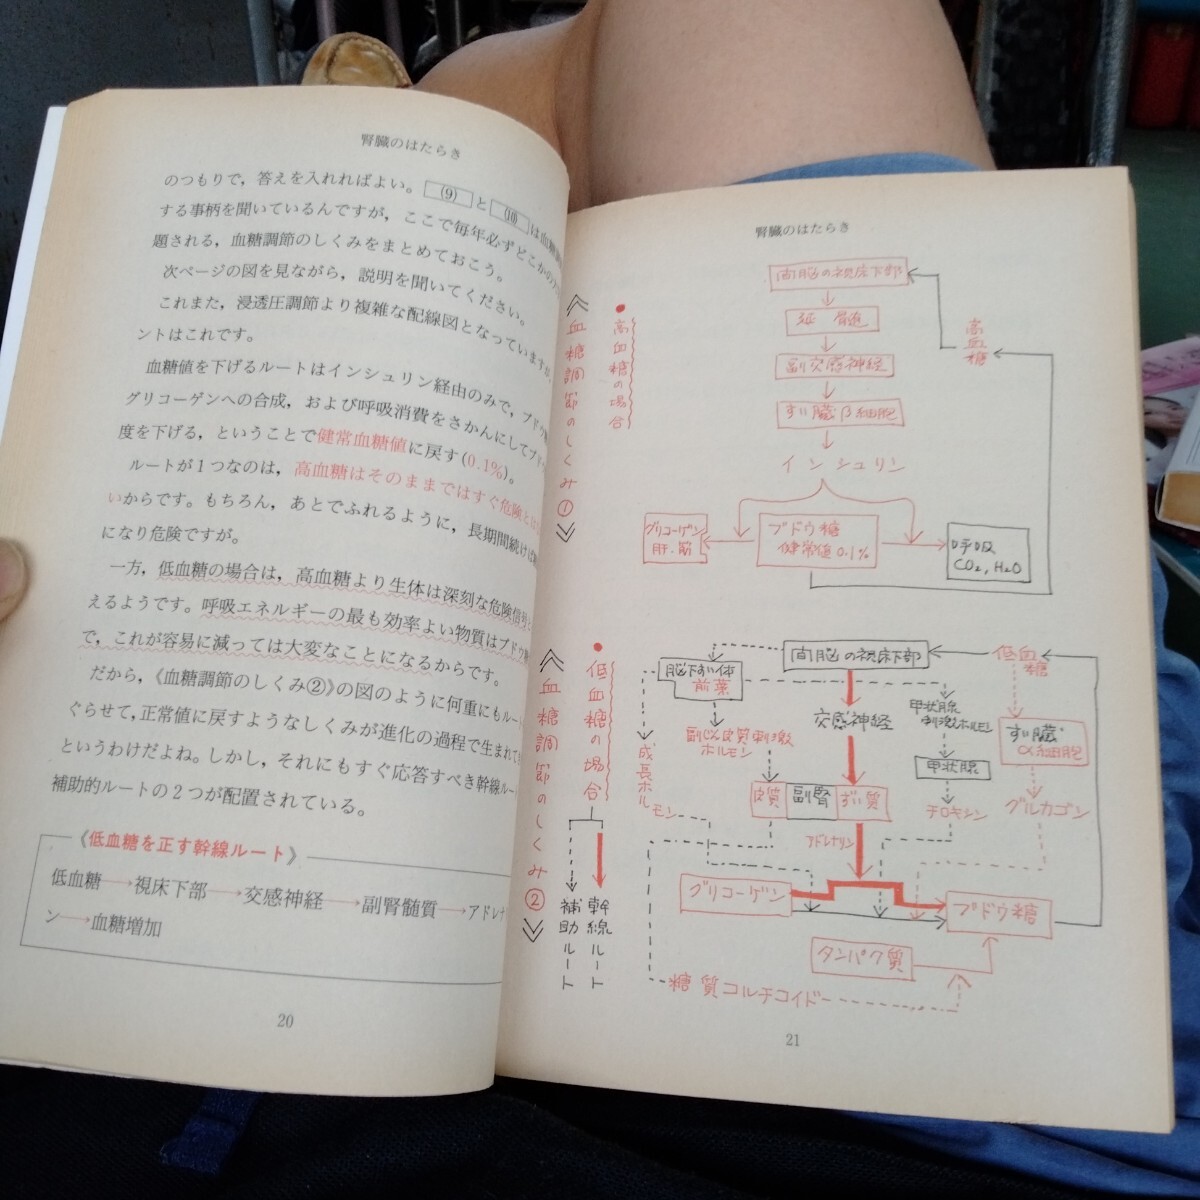 腎臓のはたらき
のつもりで，答えを入れればよい。 (9) と (10) は血糖調節
する事柄を聞いているんですが，ここで毎年必ずどこかの
題される，血糖調節のしくみをまとめておこう。
次ページの図を見ながら，説明を聞いてください。
これまた，浸透圧調節より複雑な配線図となっていますが，
ントはこれです。
血糖値を下げるルートはインシュリン経由のみで，ブドウ
グリコーゲンへの合成，および呼吸消費をさかんにしてブド
度を下げる，ということで健常血糖値に戻す(0.1%)。
ルートが1つなのは，高血糖はそのままではすぐ危険とは
いからです。もちろん，あとでふれるように，長期間続けば
になり危険ですが。
一方，低血糖の場合は，高血糖より生体は深刻な危険信号
えるようです。呼吸エネルギーの最も効率よい物質はブドウ
で，これが容易に減っては大変なことになるからです。
だから，《血糖調節のしくみ②》の図のように何重にもルー
ぐらせて，正常値に戻すようなしくみが進化の過程で生まれて
というわけだよね。しかし，それにもすぐ応答すべき幹線ルー
補助的ルートの2つが配置されている。
《低血糖を正す幹線ルート》
低血糖→視床下部→交感神経→副腎髄質→アドレナ
ン→血糖増加
20
腎臓のはたらき
《血糖調節のしくみ①》
●高血糖の場合
間脳の視床下部
延髄
副交感神経
すい臓β細胞
インシュリン
高血糖
グリコーゲン
肝・筋
ブドウ糖
健常値0.1%
呼吸
CO₂, H₂O
《血糖調節のしくみ②》
●低血糖の場合
幹線ルート
補助ルート
間脳の視床下部
低血糖
脳下すい体
前葉
副じん皮質刺激
ホルモン
成長ホルモン
交感神経
甲状腺
刺激ホルモン
甲状腺
チロキシン
すい臓
α細胞
グルカゴン
皮質 副腎 ずい質
アドレナリン
グリコーゲン
ブドウ糖
タンパク質
糖質コルチコイド
21